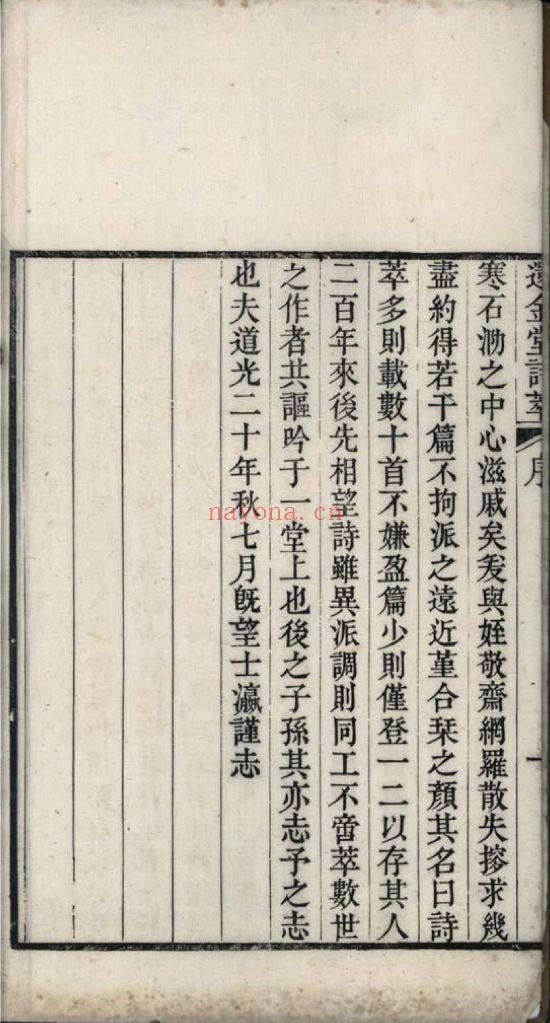 還金堂詩萃 序 一
寒石泐之中心滋戚矣爰與姪敬齋網羅散失搜求幾
盡約得若干篇不拘派之遠近堇合栞之顏其名曰詩
萃多則載數十首不嫌盈篇少則僅登一二以存其人
二百年來後先相望詩雖異派調則同工不啻萃數世
之作者共謳吟于一堂上也後之子孫其亦志予之志
也夫道光二十年秋七月旣望士瀛謹志
navona.cn